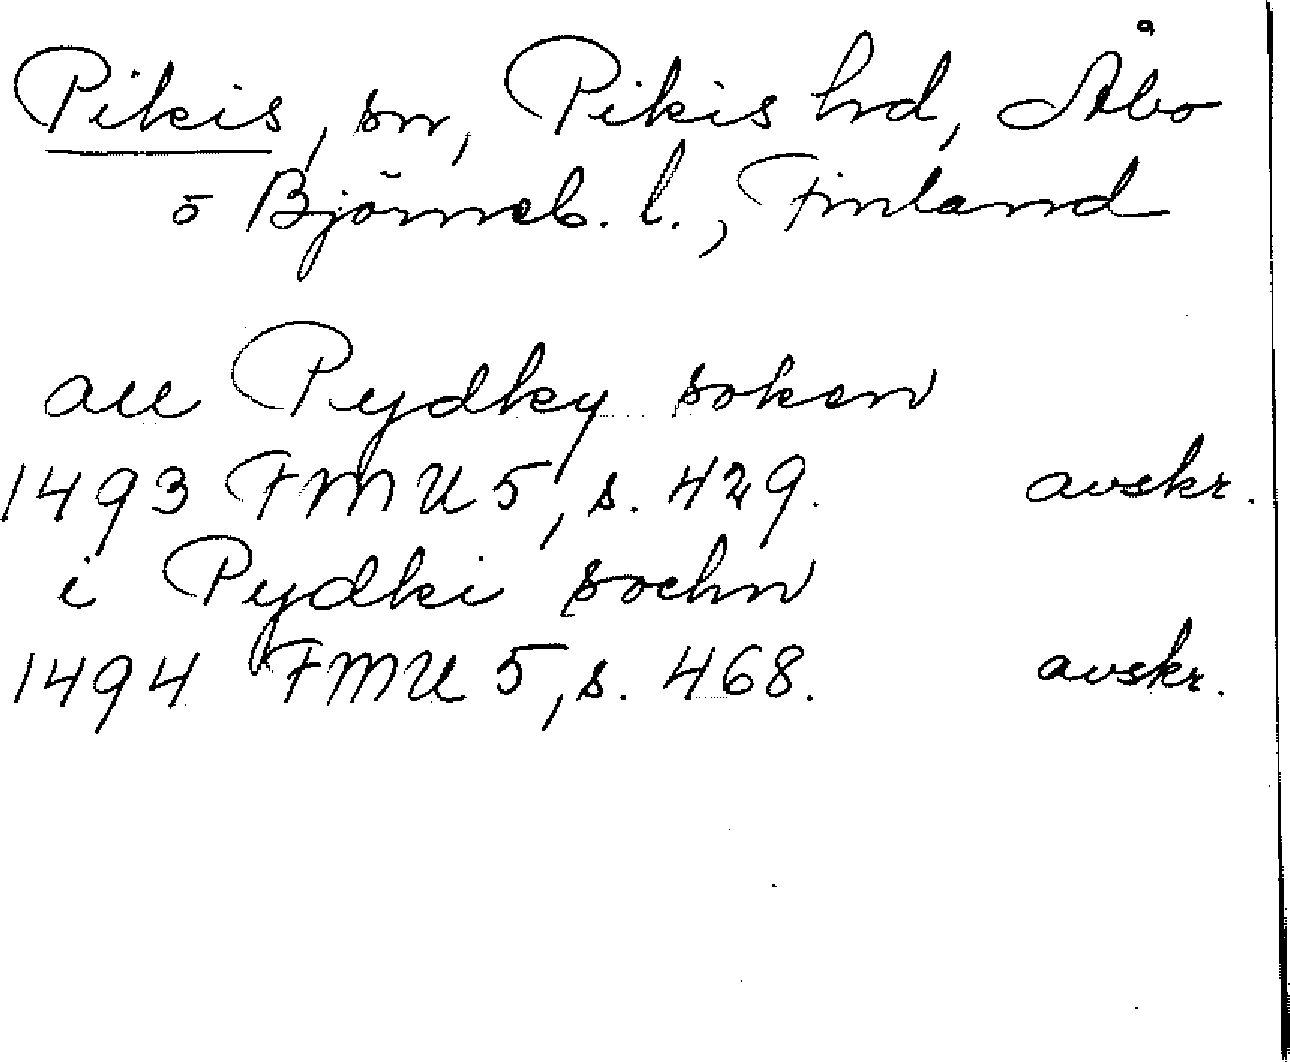 Pikis, sn, Pikis hd, Åbo
o Björneb. l., Finland
aue Pydky soken
1493 FMU 5, s. 429. avskr.
i Pydki sochn
1494 FMU 5, s. 468. avskr.